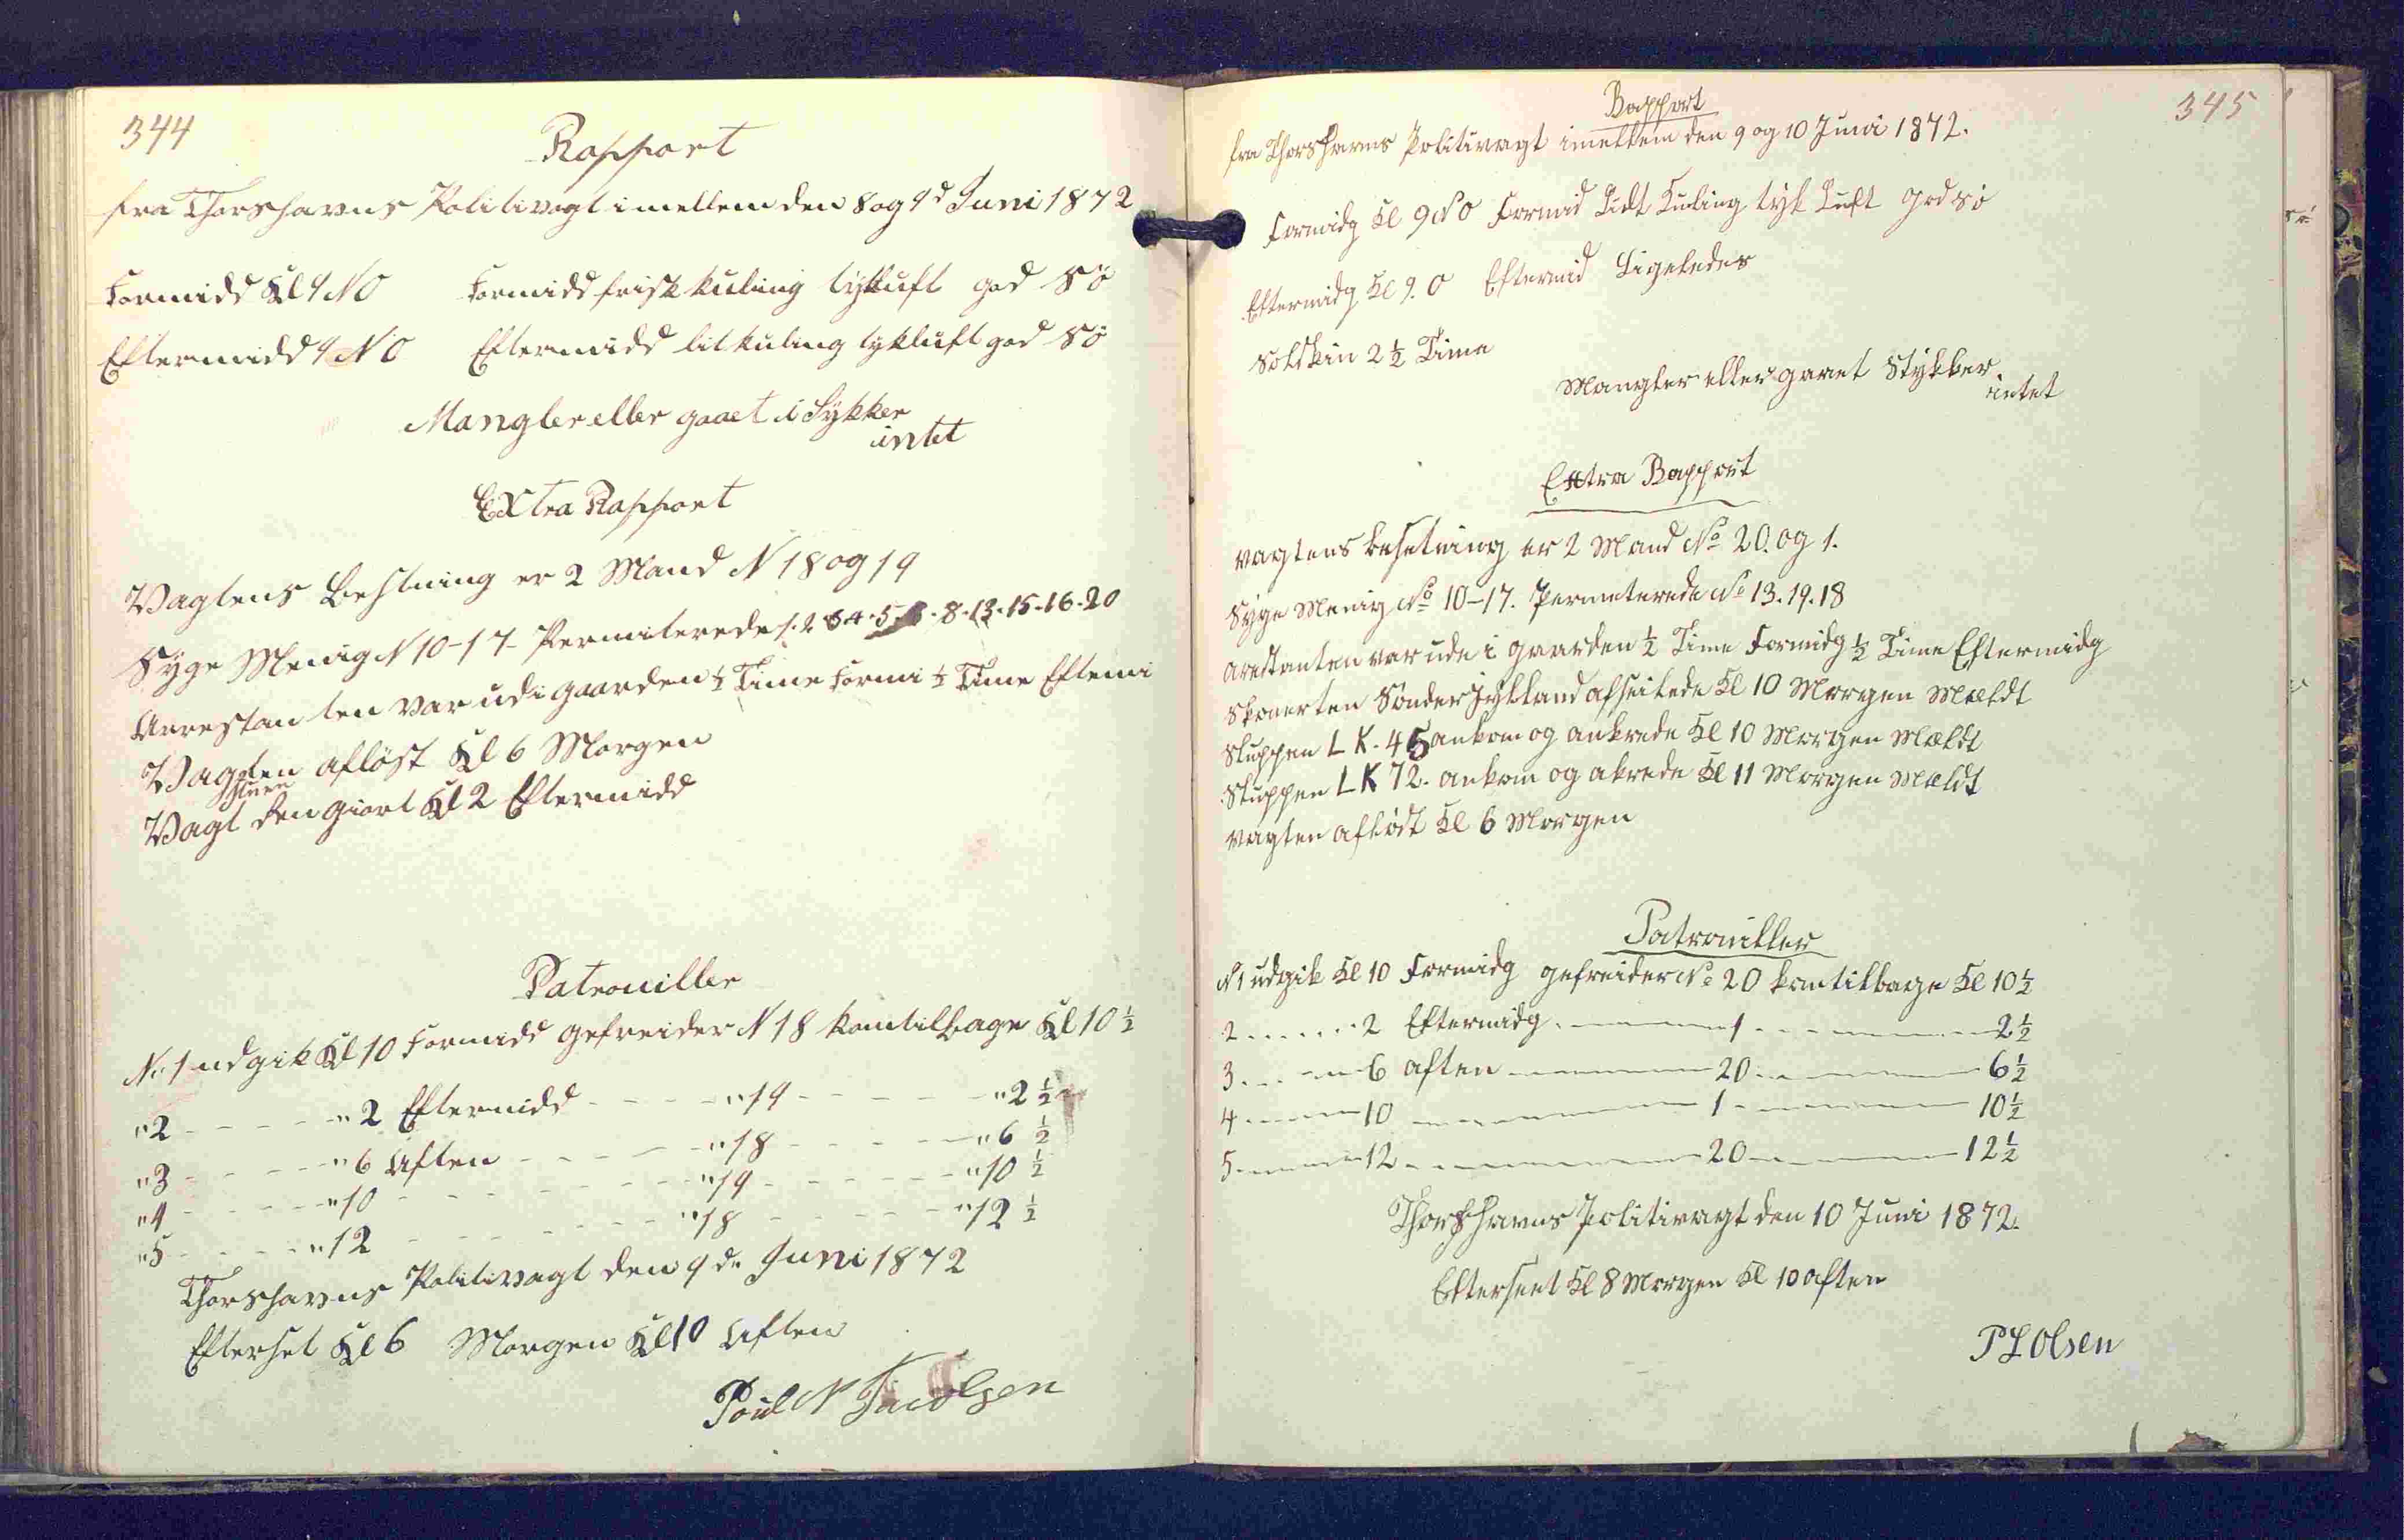 344
Rapport
fra Thorshavns Politivagt imellem den 8 og 9d Juni 1872
Formidd Kl 9 NO Formidd frisk kuling tykluft god Sö
Eftermidd 9 NO Eftermidd lit kuling tykluft god Sö
Mangler eller gaaet i Sykker
intet
Extra Rapport
Vagtens Besetning er 2 Mand N 18 og 19
Syge Menig N 10-17- Permiterede 1.2 3 4.5. 8.13.15.16.20
Arrestanten var ude i gaarden ½ Time Formi ½ Time Eftemi
Vagten aflöst Kl 6 Morgen
Vagt stuen giort Kl 2 Eftermidd
Patrouiller
No 1 udgik Kl 10 Formidd gefreider N 18 kom tilbage Kl 10 ½
"2 - - - - "2 Eftermidd - - - - "19 - - - - - "2 ½
"3 - - - - "6 Aften - - - - "18 - - - - - "6 ½
"4 - - - - "10 - - - - - - - "19 - - - - - "10 ½
"5 - - - - "12 - - - - - - - "18 - - - - - "12 ½
Thorshavns Politivagt den 9 d. Juni 1872
Efterset Kl 6 Morgen Kl 10 Aften
Poul N Jacobsen
345
Rapport
fra Thorshavns Politivagt imellem den 9 og 10 Juni 1872.
Formidg Kl 9 NO Formid Lidt Kuling tyk Luft god Sö
Eftermidg Kl 9. O Eftermid Ligeledes
Solskin 2 ½ Time
Mangler eller gaaet Stykker
intet
Extra Rapport
Vagtens besetning er 2 Mand No 20. og 1.
Syge Menig No 10-17. Permeterede No 13.19.18
Arestanten var ude i gaarden ½ Time Formidg ½ Time Eftermidg
Skonerten Sönder Jylland afseilede Kl 10 Morgen Mældt
Sluppen L K. 45 ankom og ankrede Kl 10 Morgen Mældt
Sluppen L K 72. ankom og akrede Kl 11 Morgen Mældt
Vagten aflöst Kl 6 Morgen
Patrouiller
N1 udgik Kl 10 Formidg gefreider No 20 kom tilbage Kl 10 ½
2 - - - - 2 Eftermidg - - - - 1 - - - - 2 ½
3 - - - - 6 aften - - - - 20 - - - - 6 ½
4 - - - - 10 - - - - 1 - - - - 10 ½
5 - - - - 12 - - - - 20 - - - - 12 ½
Thorshavns Politivagt den 10 Juni 1872.
Efterseet Kl 8 Morgen Kl 10 aften
P L Olsen